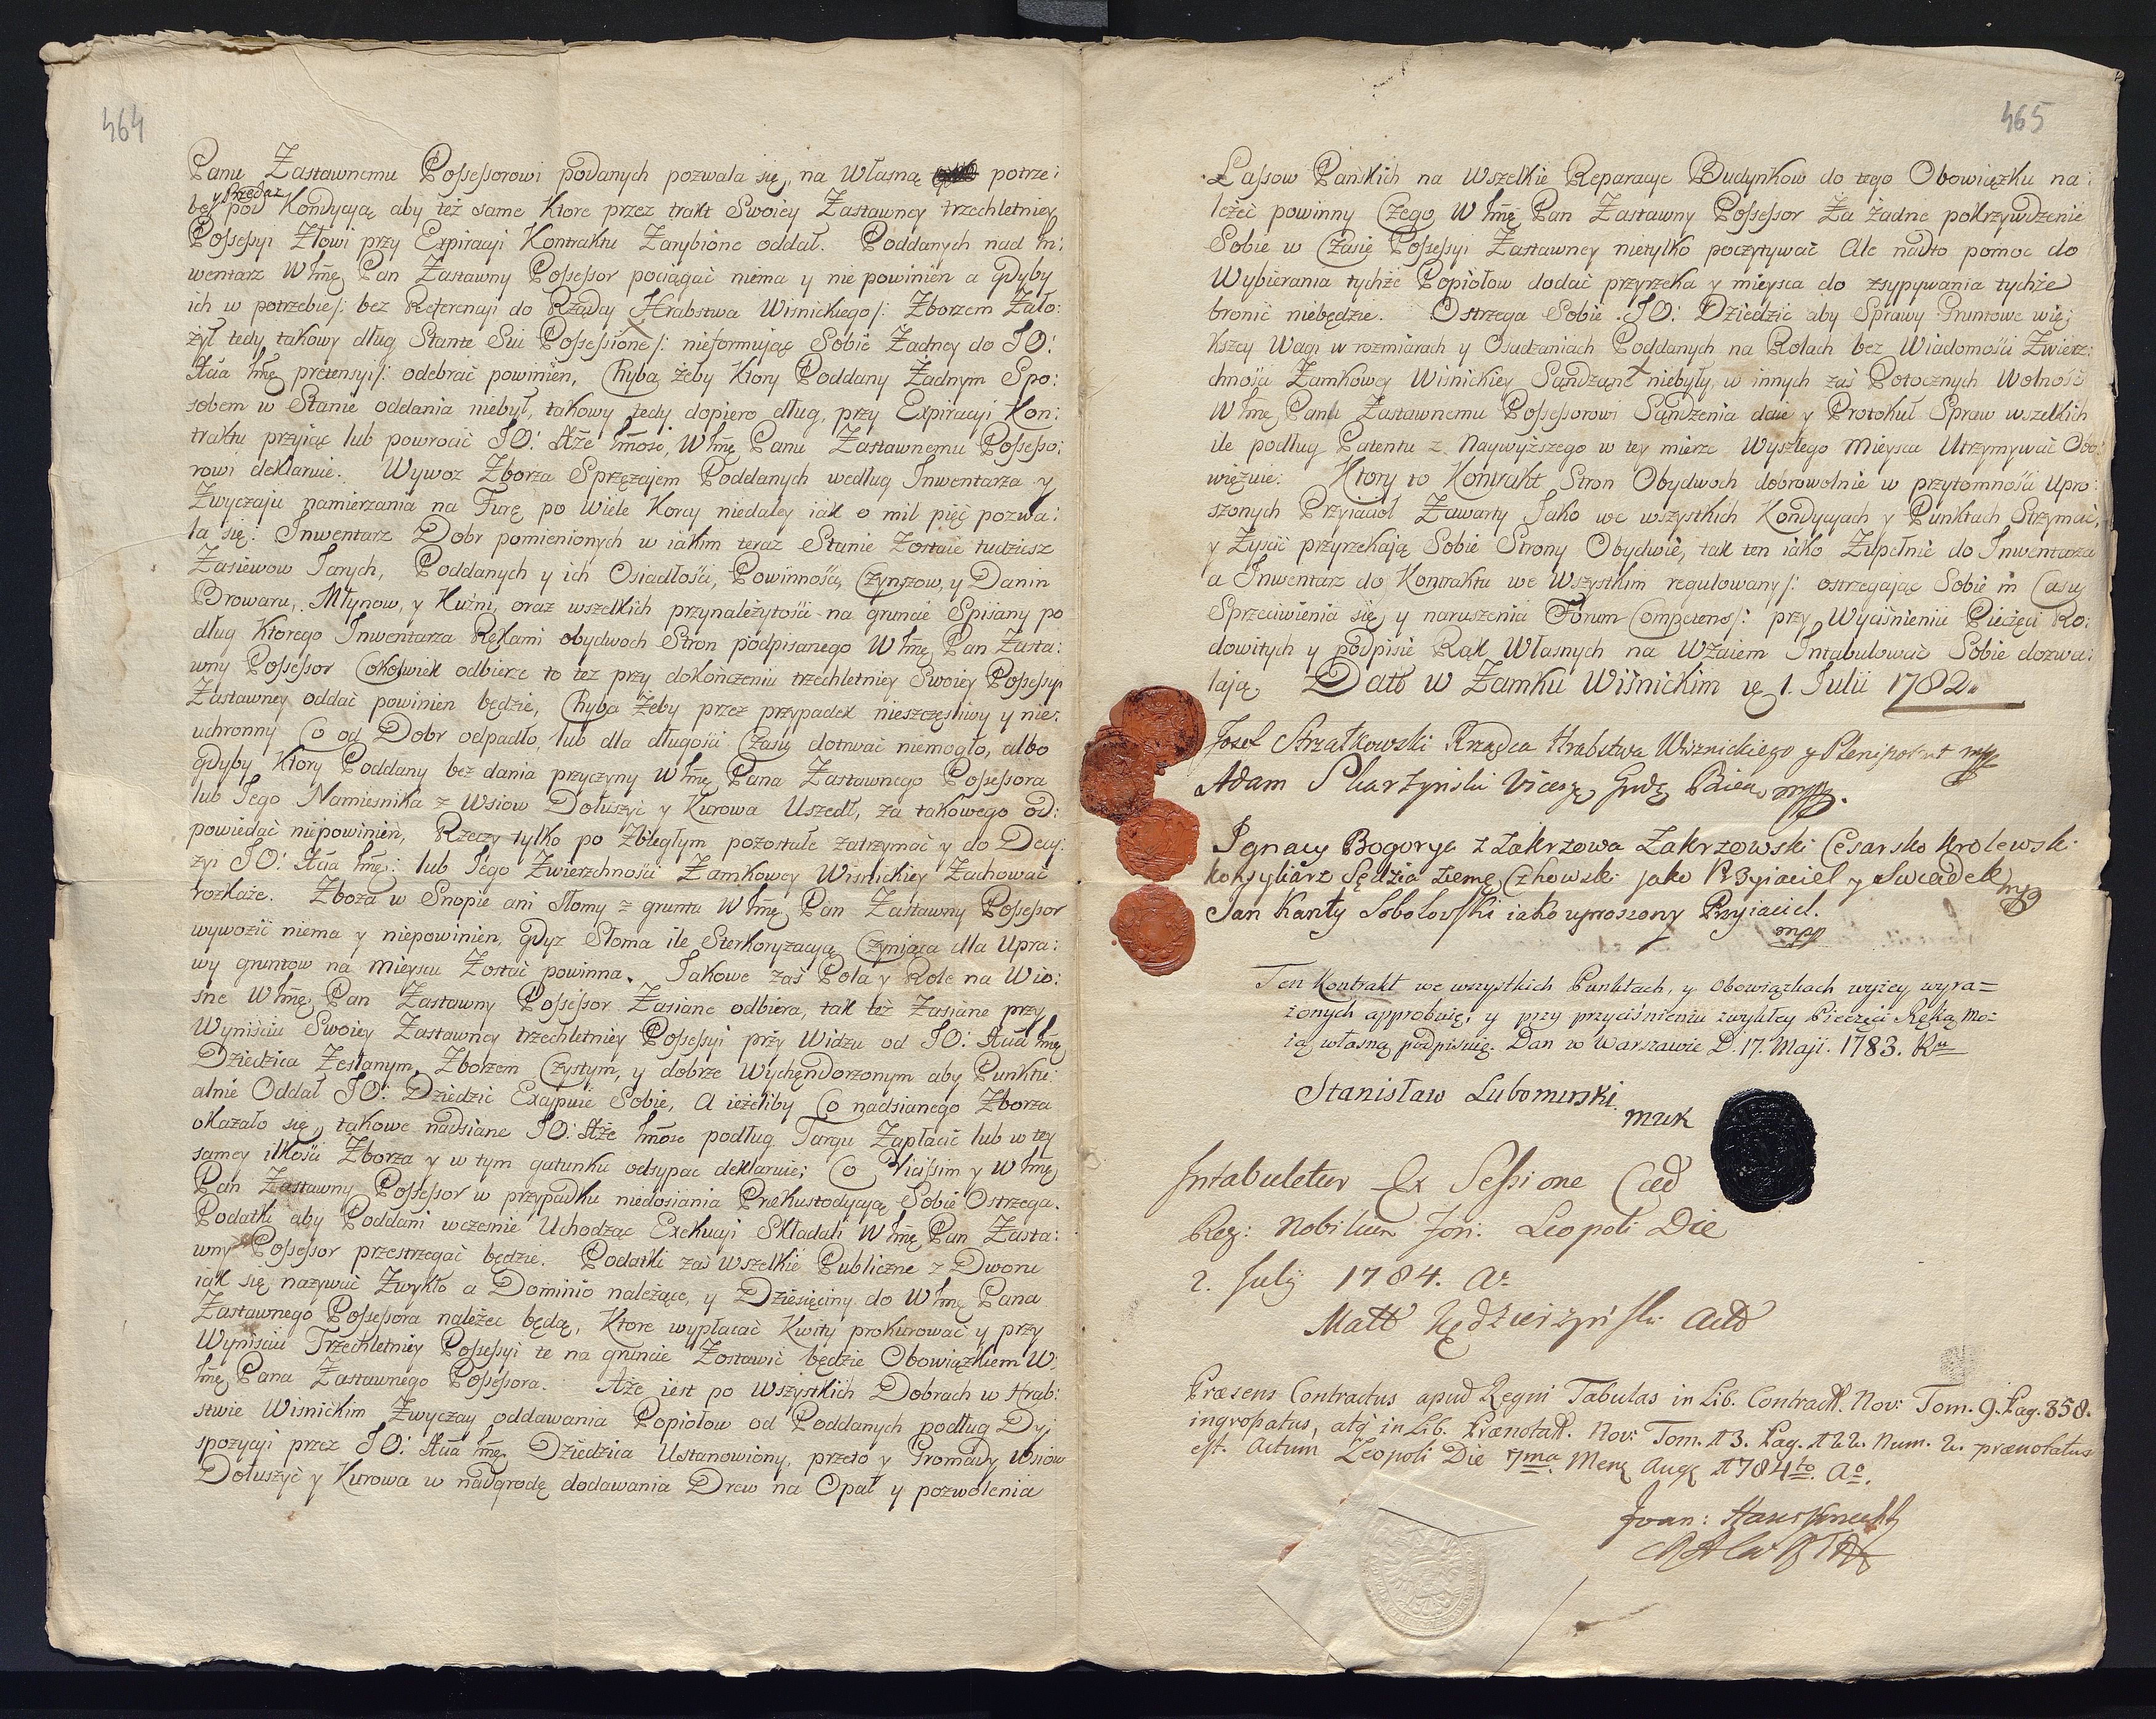 464
Panu Zastawnemu Possessorowi podanych pozwala się, na Własną potrze:
y Przedaz
bę pod Kondycyą aby też same Ktore przez trakt Swoiey Zastawney trzechletniey
Possessyi Złowi przy Expiracyi Kontraktu Zarybione oddał. Poddanych nad In:
wentarz W Jmę Pan Zastawny Possessor pociągać niema y nie powinien a gdyby
ich w potrzebie /: bez Referencyi do Rządcy Hrabstwa Wisnickiego /: Zborzem Zało:
żył tedy takowy dług Stante Sui Possessione /: nieformując Sobie Zadney do JO:
Xcia Jmę pretensyi /: odebrać powinien, Chyba żeby Ktory Poddany Żadnym Spo:
sobem w Stanie oddania niebył, takowy tedy dopiero dług, przy Expiracyi Kon:
traktu przyiąc lub powrocić JO: Xże Jmość, W Jmę Panu Zastawnemu Possesso:
rowi deklaruie. Wywoz Zborza Sprzężaiem Poddanych według Inwentarza y
Zwyczaju namierzania na Furę po Wiele Korcy niedaley iak o mil pięć pozwa:
la się. Inwentarz Dobr pomienionych w iakim teraz Stanie Zostaie tudziesz
Zasiewow Jarych, Poddanych y ich Osiadłości, Powinności, Czynszow, y Danin
Browaru, Młynow, y Kuźni, oraz wszelkich przynależytości na gruncie Spisany po
dług Ktorego Inwentarza Rękami obydwoch Stron podpisanego W Jmę Pan Zasta:
wny Possessor Cokolwiek odbierze to tez przy dokończeniu trzechletniey Swoiey Possessyi
Zastawney oddać powinien będzie, Chyba Żeby przez przypadek nieszczęsliwy y nie:
uchronny Co od Dobr odpadło, lub dla długości Czasu dotrwać niemogło, albo
gdyby Ktory Poddany bez dania przyczyny W Jmę Pana Zastawnego Possessora
lub Jego Namiesnika z Wsiow Dołuszyć y Kurowa Uszedł, za takowego od:
powiedać niepowinien, Rzeczy tylko po Zbiegłym pozostałe zatrzymać y do Decy:
zyi JO: Xcia Jmę: lub Jego Zwierzchności Zamkowey Wisnickiey Zachować
rozkaże. Zboża w Snopie ani Słomy z gruntu W Jmę Pan Zastawny Possessor
wywozić niema y niepowinien, gdyz Słoma ile Sterkoryzacyą Czyniąca dla Upra:
wy gruntow na mieyscu Zostać powinna. Jakowe zaś Pola y Role na Wio:
snę W Jmę Pan Zastawny Possessor Zasiane odbiera, tak też Zasiane przy
Wyniściu Swoiey Zastawney trzechletniey Possessyi przy Widzu od JO: Xcia Jmę
Dziedzica Zesłanym, Zborzem Czystym, y dobrze Wychędorzonym aby Punktu:
alnie Oddał JO: Dziedzic Exajpuie Sobie, A ieżeliby Co nadsianego Zborza
okazało się, takowe nadsiane JO: Xże Jmość podług Targu Zapłacić lub w tey
samey ilkości Zborza y w tym gatunku odsypac deklaruie; Co Vicissim y W Jmę
Pan Zastawny Possessor w przypadku niedosiania Prekustodycyą Sobie Ostrzega.
Podatki aby Poddani wczesnie Uchodząc Exekucyi Składali W Jmę Pan Zasta:
wny Possessor przestrzegać będzie. Podatki zaś Wszelkie Publiczne z Dworu
iak się nazywać Zwykło a Dominio należące, y Dziesięciny do W Jmę Pana
Zastawnego Possessora należec będą, Ktore wypłacać Kwity prokurować y przy
Wyniściu Trzechletniey Possessyi te na gruncie Zostawić będzie Obowiązkiem W:
Jmę Pana Zastawnego Possessora. Aże iest po Wszystkich Dobrach w Hrab:
stwie Wisnickim Zwyczay oddawania Popiołow od Poddanych podług Dy:
spozycyi przez JO: Xcia Jmę Dziedzica Ustanowiony, przeto y Gromady Wsiow
Dołuszyć y Kurowa w nadgrodę dodawania Drew na Opał y pozwolenia
465
Lassow Pańskich na Wszelkie Reparacye Budynkow do tego Obowiązku na:
leżeć powinny Czego W Jmę Pan Zastawny Possessor Za żadne pokrzywdzenie
Sobie w Czasie Possessyi Zastawney nietylko poczytywać Ale nadto pomoc do
Wybierania tychże Popiołow dodać przyrzeka y mieysca do zsypywania tychże
bronić niebędzie. Ostrzega Sobie JO: Dziedzic aby Sprawy Gruntowe wię:
kszey Wagi w rozmiarach y Osadzaniach Poddanych na Rolach bez Wiadomości Zwierz:
chności Zamkowey Wisnickiey Sądzane niebyły, w innych zaś Potocznych Wolność
W Jmę Panu Zastawnemu Possessorowi Sądzenia daie y Protokuł Spraw wszelkich
ile podług Patentu z Naywyższego w tey mierze Wyszłego Mieysca Utrzymywać Obo:
więzuie. Ktory to Kontrakt Stron Obydwoch dobrowolnie w przytomności Upro:
szonych Przyiacioł Zawarty Jako we wszystkich Kondycyach y Punktach Strzymać,
y Zyscić przyrzekają Sobie Strony Obydwie, tak ten iako Zupełnie do Inwentarza
a Inwentarz do Kontraktu we Wszystkim regulowany /: ostrzegając Sobie in Casu
Sprzeciwienia się y naruszenia Forum Competens /: przy Wyciśnieniu Pieczęci Ro:
dowitych y podpisie Rąk Własnych na Wzaiem Intabulować Sobie dozwa:
lają. Datt w Zamku Wiśnickim ię 1. Julii 1782.
Josef Strzałkowski Rządca Hrabstwa Wiznickiego y Plenipotent mpp
Adam Skarżyński Vicesg Grdz Biec mpp.
Ignacy Bogorya z Zakrzowa Zakrzowski Cesarsko Krolewski
konsyliarz Sędzia ziemę Czhowski jako Przyiaciel y Swiadek mp
Jan Kanty Sobolowski iako uproszony Przyiaciel.
mpp
Ten Kontrakt we wszystkich Punktach, y Obowiązkach wyżey wyra=
żonych approbuię, y przy przyciśnieniu zwykłey Pieczęci Ręką Mo=
ią własną podpisuię. Dan w Warszawie D. 17. Maji. 1783. Ru
Stanisław Lubomirski
MWK
Intabuletur Ex Sessione Caes
Reg: Nobilium Fori: Leopoli Die
2. July 1784. Ao
Præsens Contractus apud Regni Tabulas in Lib. Contractt. Nov: Tom. 9. Pag. 358.
ingrossatus, atq in Lib. Prænotatt. Nov: Tom. 13. Pag. 122. Num. 2. prænotatus
est. Actum Leopoli Die 7ma Mens Aug 1784to Ao.
Joan: Hausknecht